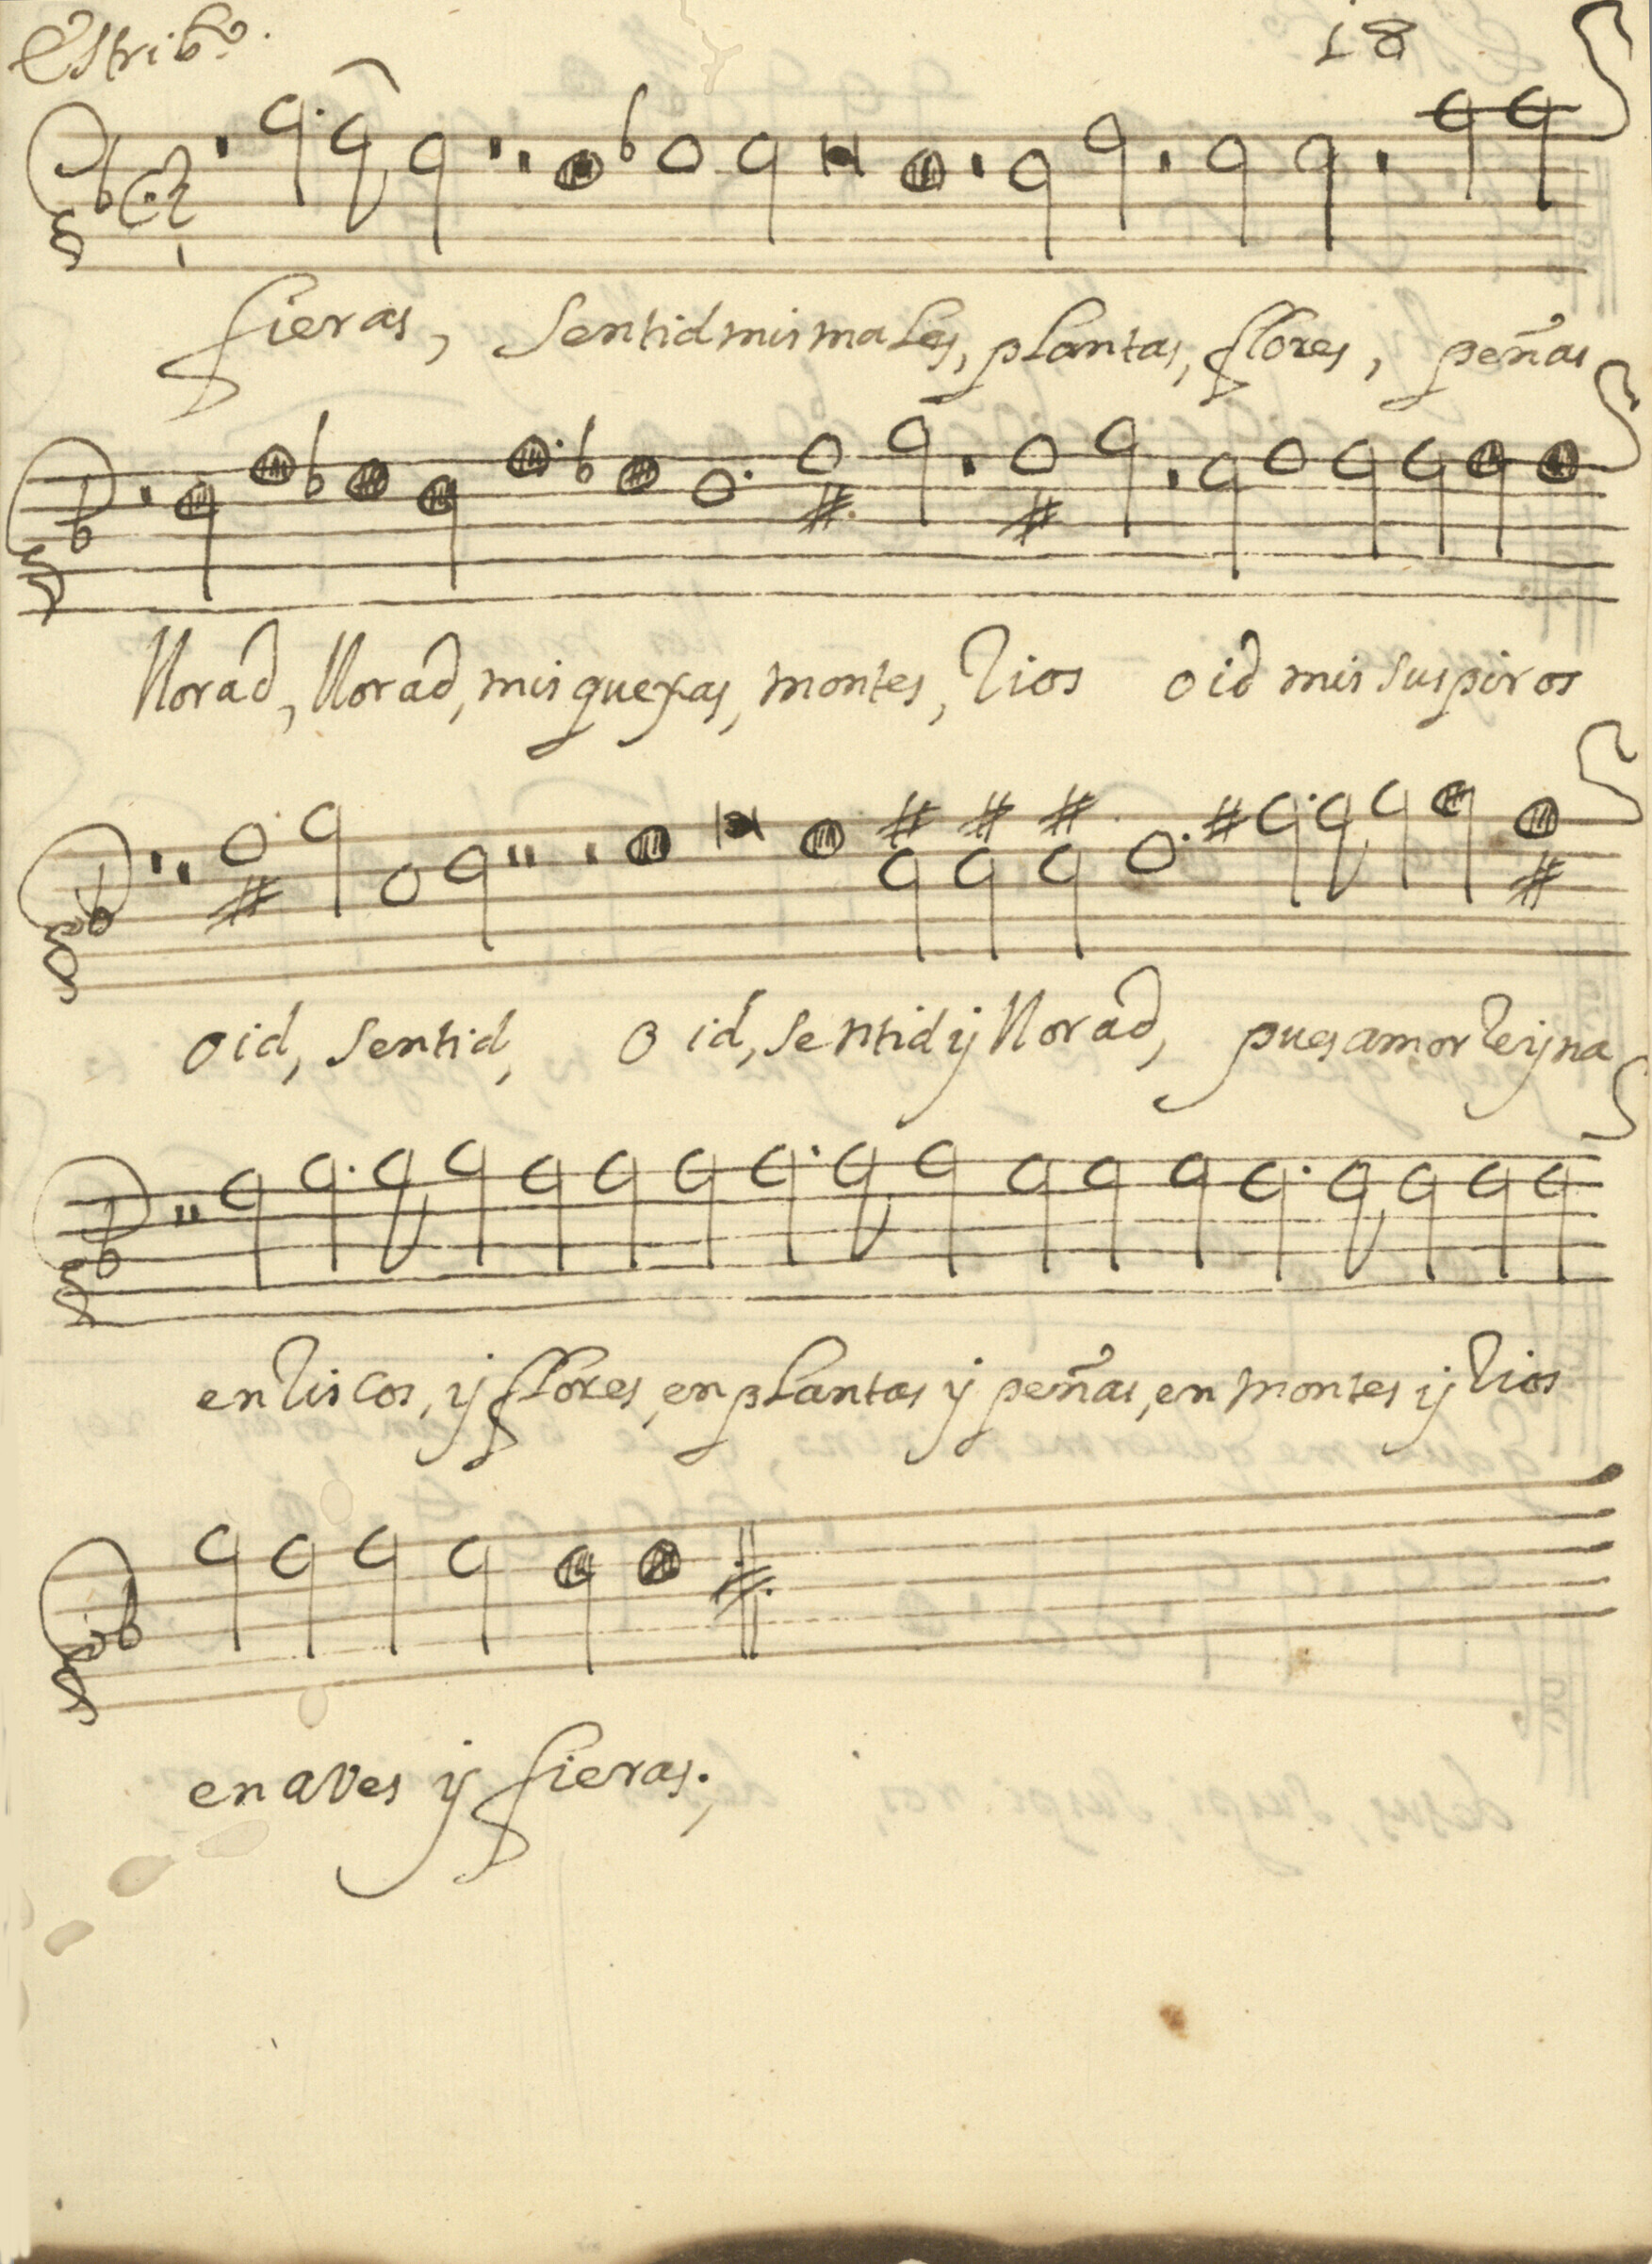 Estribº. 18
fieras, Sentid mis males, plantas, flores, peñas
llorad, llorad, mis quexas, montes, Rios oid mis suspiros
oid, sentid, oid, sentid ÿ llorad, pues amor Reÿna
en Riscos, ÿ flores, en plantas ÿ peñas, en montes ÿ Rios
en aves ÿ fieras.